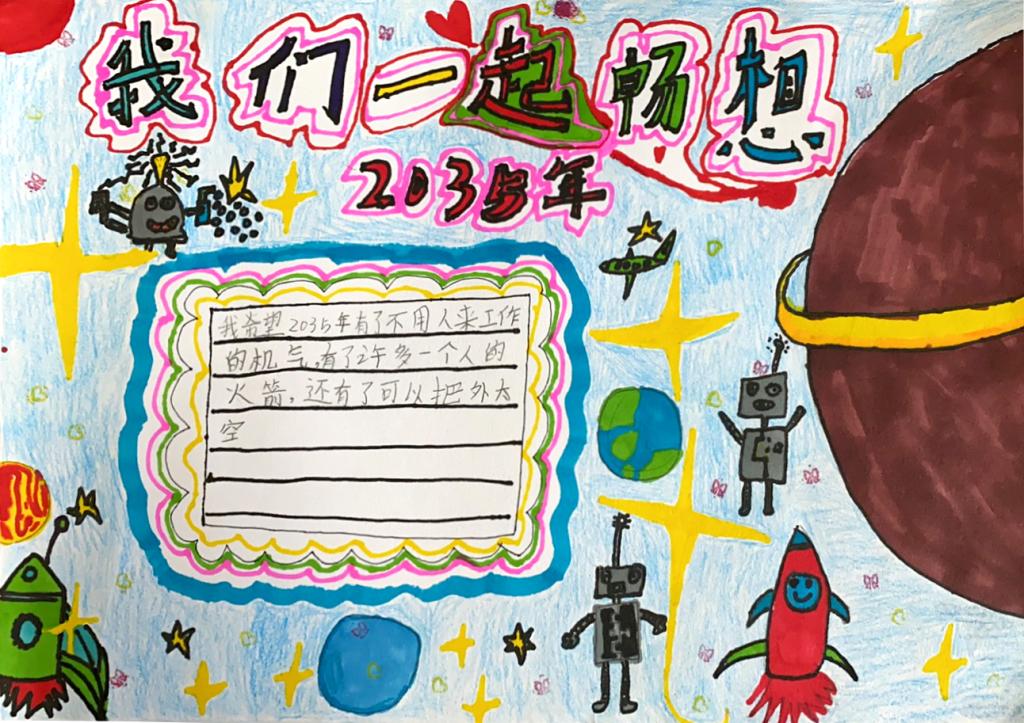 我们一起畅想
2035年
我希望2035年有了不用人来工作
的机气,有了许多一个人的
火箭,还有了可以把外太
空